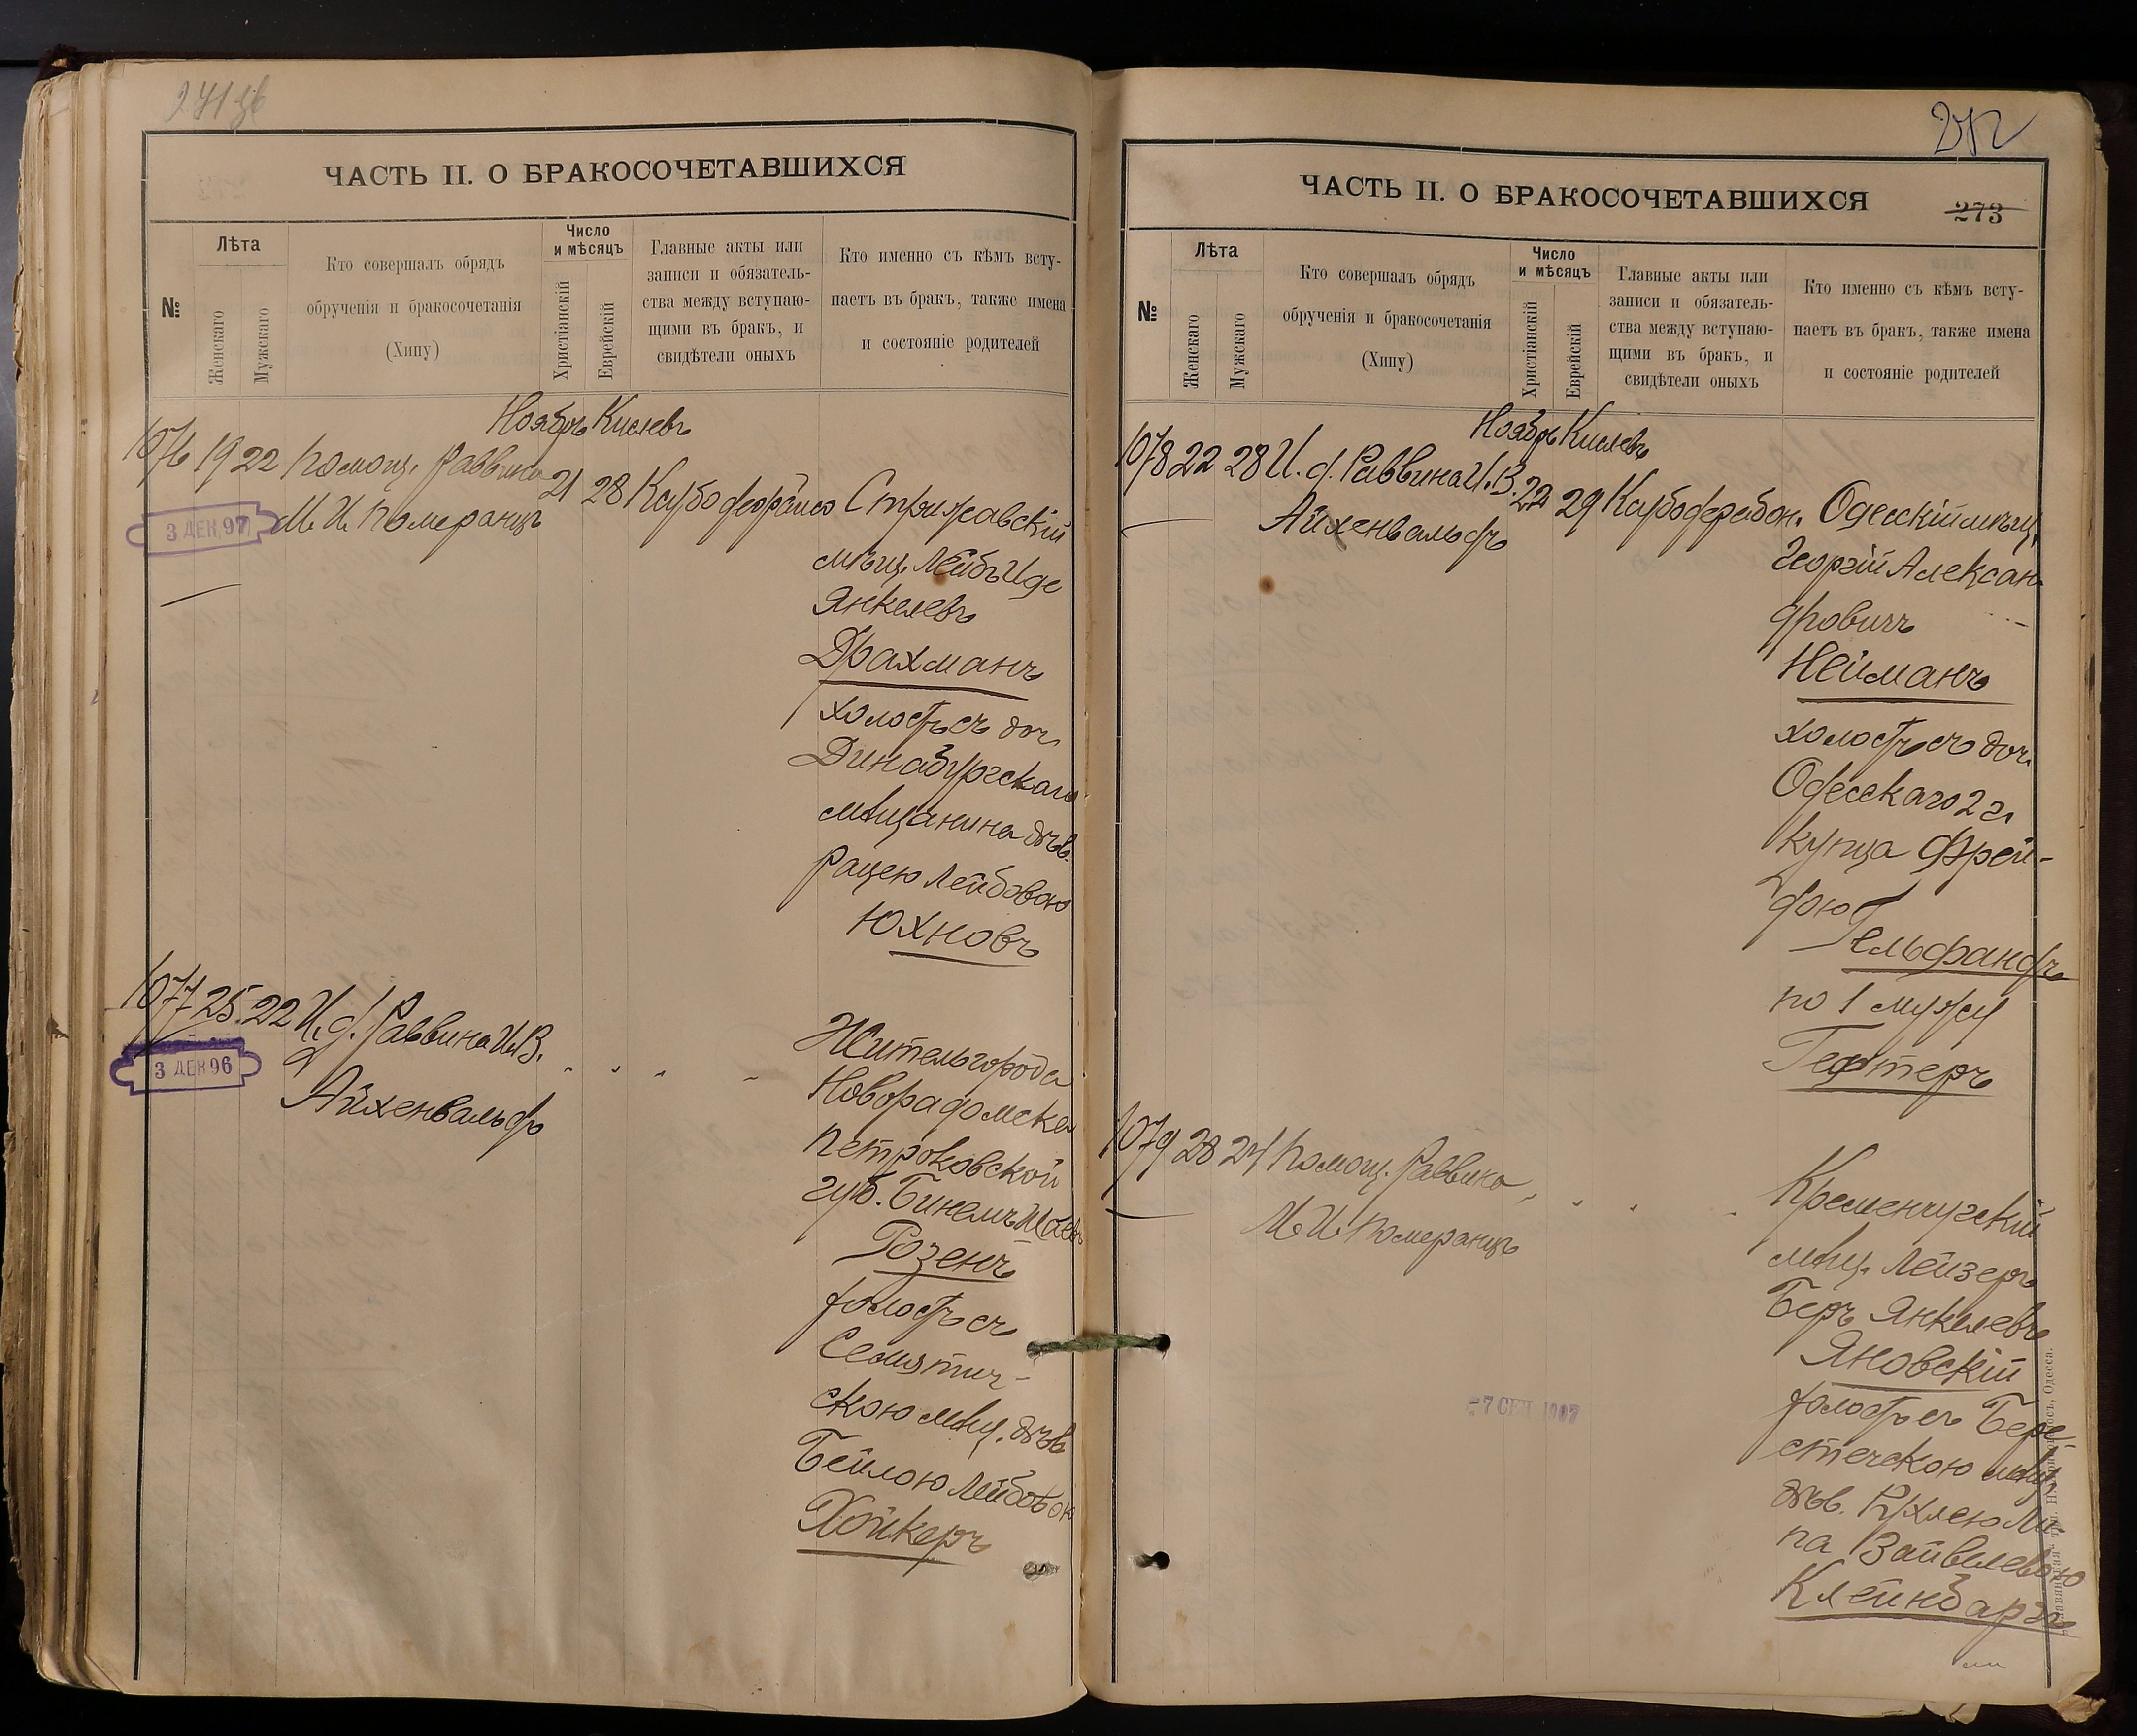 ЧАСТЬ II. О БРАКОСОЧЕТАВШИХСЯ
№
Лѣта
Женскаго
Мужскаго
Кто совершалъ обрядъ
обрученія и бракосочетанія
(Хипу)
Число
и мѣсяцъ
Христіанскій
Еврейскій
Главные акты или
записи и обязатель-
ства между вступаю-
щими въ бракъ, и
свидѣтели оныхъ
Кто именно съ кѣмъ всту-
паетъ въ бракъ, также имена
и состояніе родителей
Ноябрь Кислевъ
1076 19 22 Помощ. Раввина 21 28
М. И. Померанцъ
3 ДЕК 97
Стрижавскій
мѣщ. Лейбъ Иде
Янкелевъ
Драхманъ
холостъ съ доч.
Динабургскаго
мѣщанина дѣв.
Рацею Лейбовою
Юхновъ
1077 25 22 И. д. Раввина И. В.
Айхенвальдъ
3 ДЕК 96
Житель города
Новорадомска
Петроковской
губ. Бинемъ
Розенъ
холостъ съ
Семятич-
скою мѣщ. дѣв
Бейлою Лейбовою
Хойкеръ
272
ЧАСТЬ II. О БРАКОСОЧЕТАВШИХСЯ
273
№
Лѣта
Женскаго
Мужскаго
Кто совершалъ обрядъ
обрученія и бракосочетанія
(Хипу)
Число
и мѣсяцъ
Христіанскій
Еврейскій
Главные акты или
записи и обязатель-
ства между вступаю-
щими въ бракъ, и
свидѣтели оныхъ
Кто именно съ кѣмъ всту-
паетъ въ бракъ, также имена
и состояніе родителей
Ноябрь Кислевъ
1078 22 28 И. д. Раввина И. В. 22 29
Айхенвальдъ
Одесскій мѣщ.
Георгій Алексан-
дровичъ
Нейманъ
холостъ съ доч.
Одесскаго 2 г.
купца Фрей-
дою
Гельфандъ
по 1 мужу
Гефтеръ
1079 28 24 Помощ. Раввина
М. И. Померанцъ
Кременчугскій
мѣщ. Лейзеръ
Беръ Янкелевъ
Яновскій
холостъ съ Бере-
стечскою мѣщ
дѣв. Рухлею Ли-
па Зайвелевою
Клейнбардъ
7 СЕН 1907